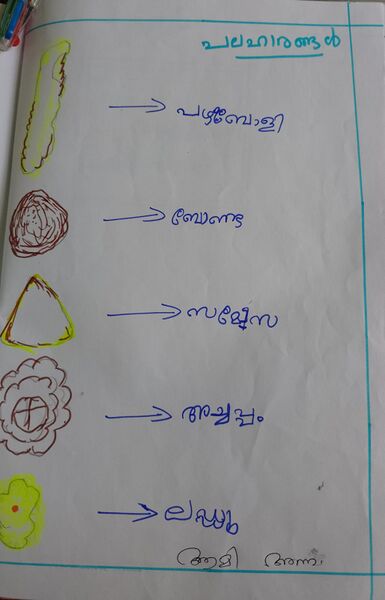 പലഹാരങ്ങൾ
പഴംബോളി
ബോണ്ട
സമ്മൂസ
അച്ചപ്പം
ലഡ്ഡു
ആമി അന്ന